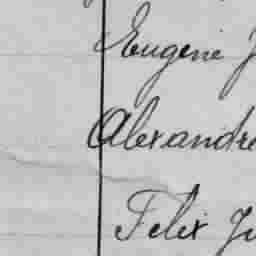 Eugene
Alexandre
Felix